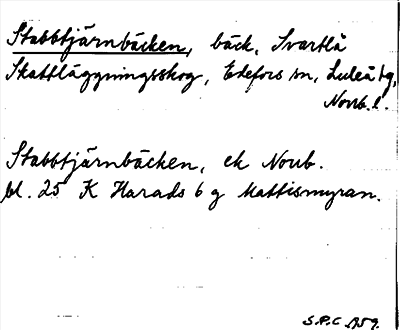 Stabbtjärnbäcken, bäck, Svartlå
Skattläggningsskog, Edefors sn, Luleå tg,
Norrb. l.
Stabbtjärnbäcken, ek Norrb.
bl. 25 K Harads 6 g Mattismyran.
S.P.C. 1959.